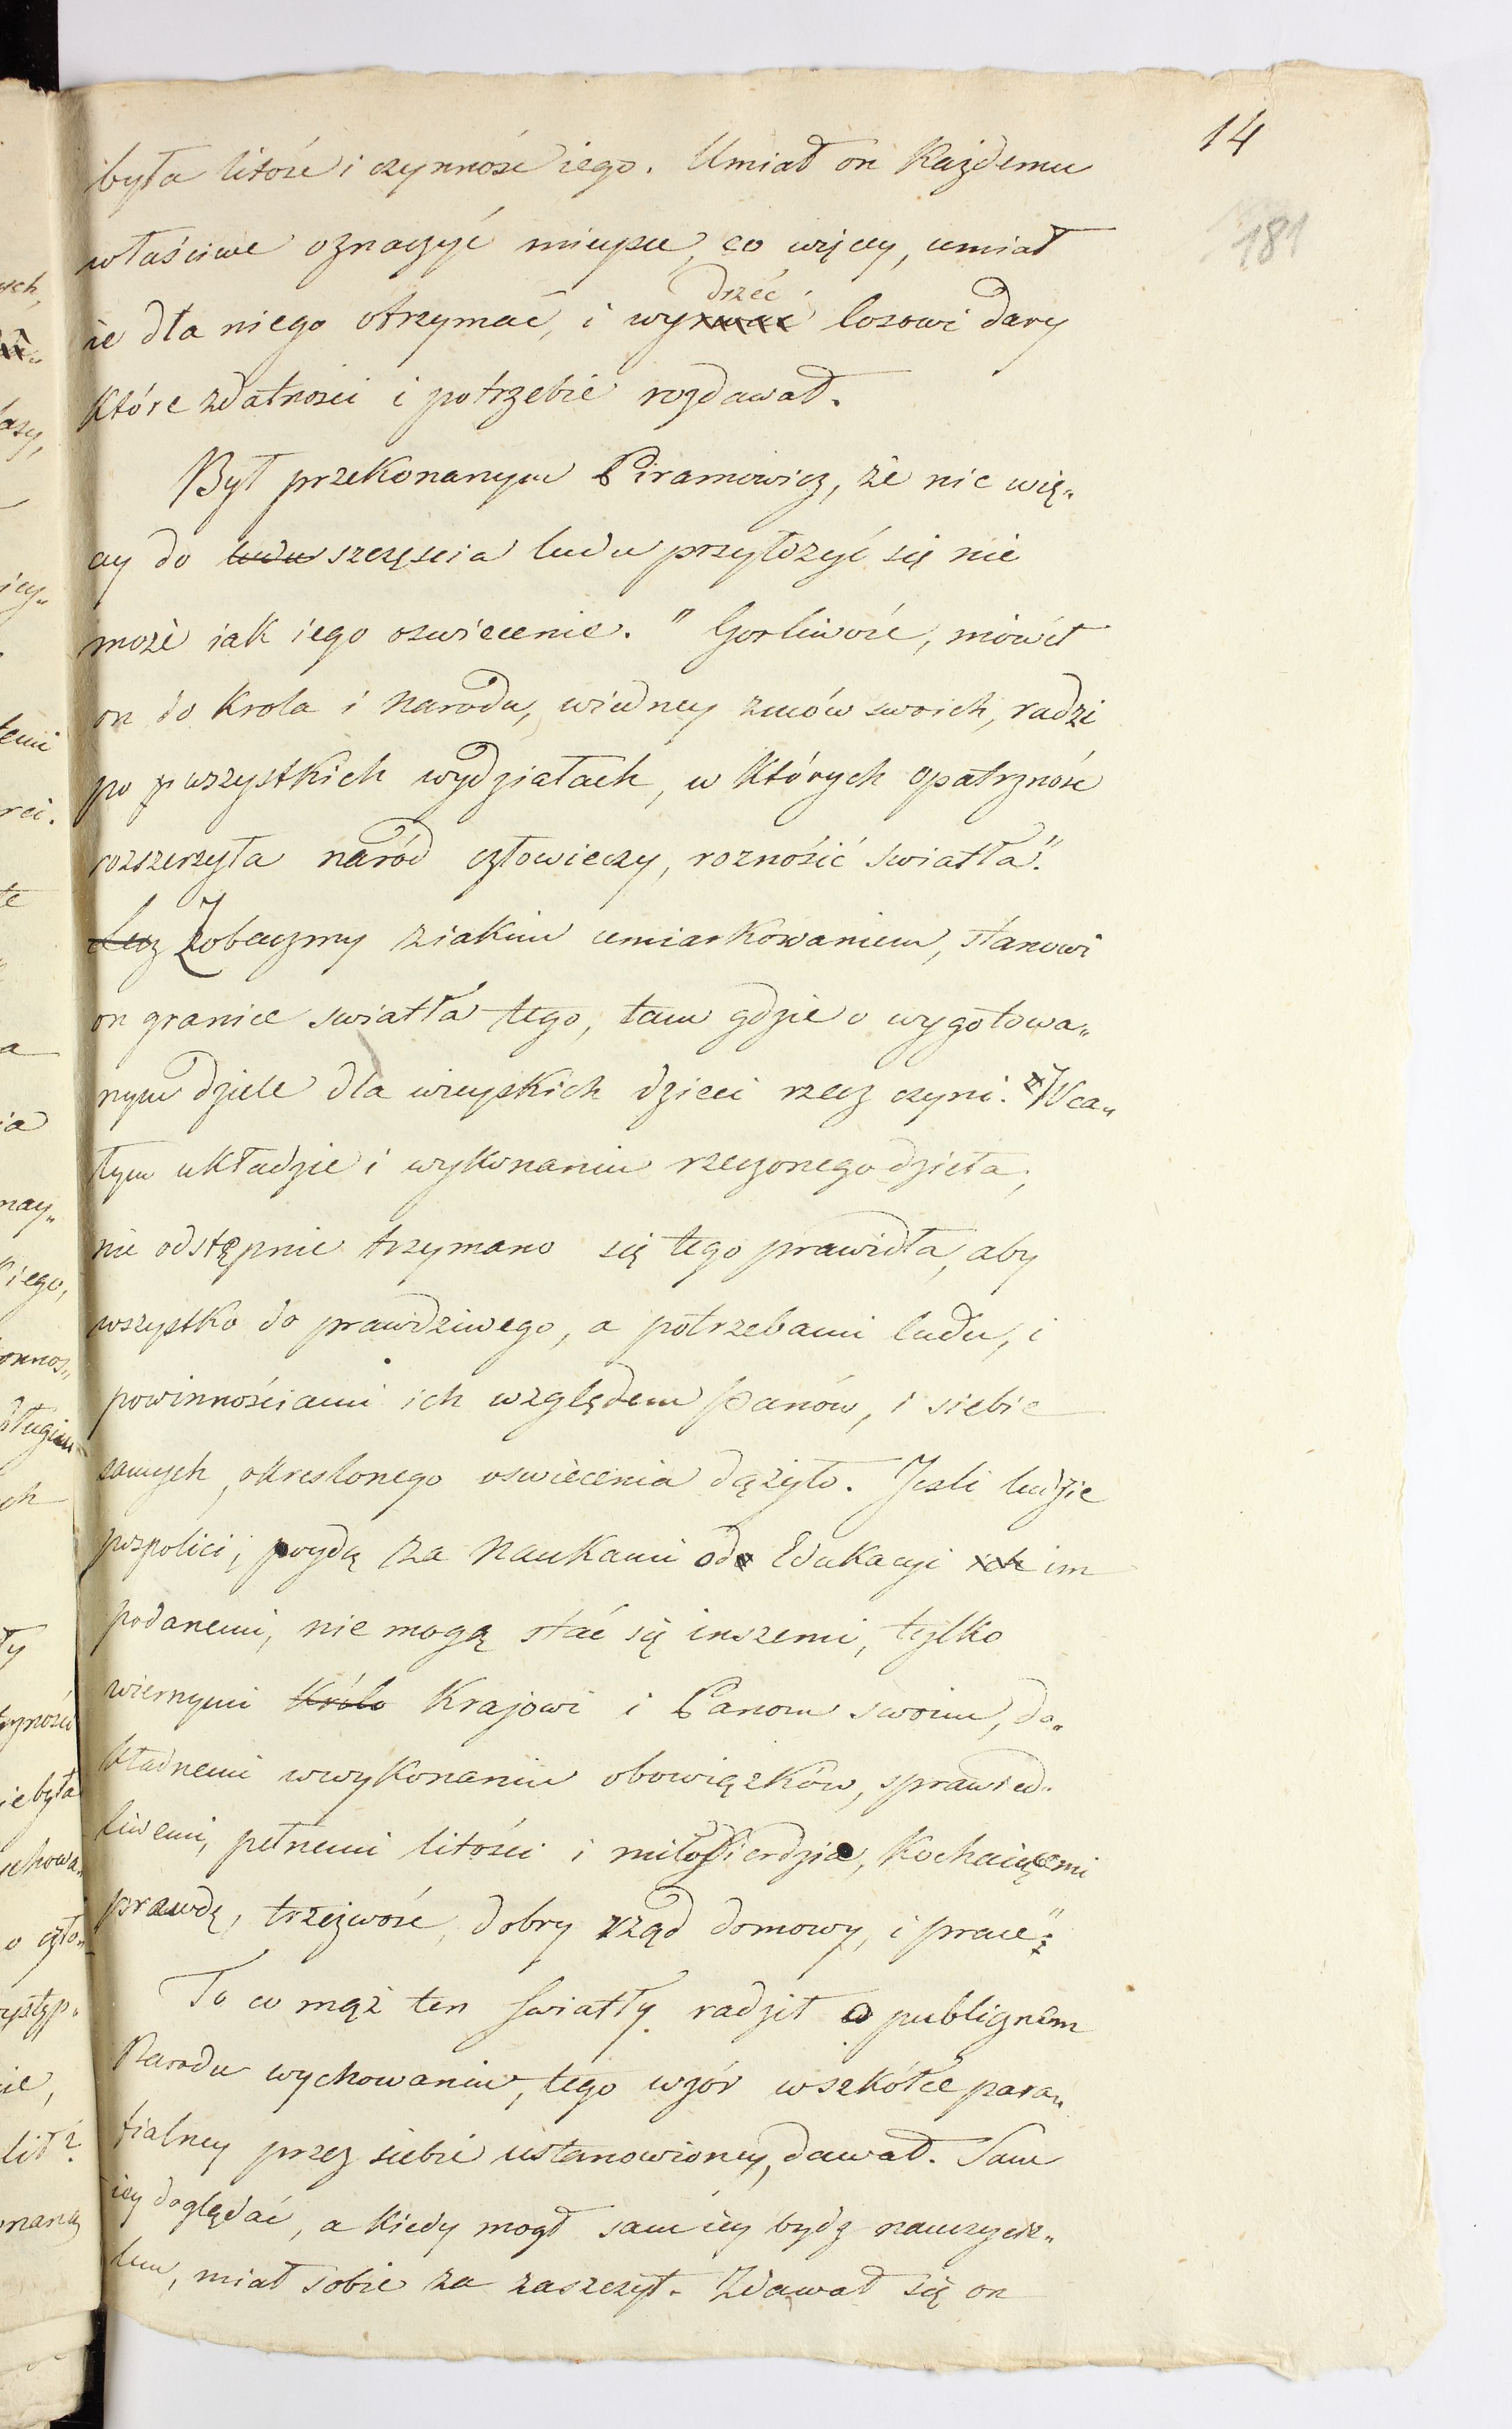 14
181
była litość i czynność iego. Umiał on Każdemu
właściwe oznaczyć mieysce, co więcey, umiał
ie dla niego otrzymać, i wyrwać drzéć losowi dary
które zdatności i potrzebie rozdawał.
Był przekonanym Piramowicz, że nic wię„
cey do ludu szczęscia ludu przyłozyć się nie
może iak iego oswiecenie. " Gorliwość, mówił
on do Krola i Narodu, wiedney zmów swoich, radzi
po wszystkich wydziałach, w których opatrzność
rozszerzyła naród człowieczy, roznośić swiatła".
Lecz Zobaczmy ziakim umiarkowaniem, stanowi
on granice swiatła tego, tam gdzie o wygotowa„
nym dziele dla wieyskich dzieci rzecz czyni. "W ca„
łym układzie i wykonaniu rzeczonego dzieła,
nie odstępnie trzymano się tego prawidła, aby
wszystko do prawdziwego, a potrzebami ludu, i
powinnościami ich względem Panów, i siebie
samych, okreslonego oswiecenia dążyło. Jesli ludzie
pospolici, poydą za Naukami od Edukacyi ich im
podanemi, nie mogą stać się inszemi, tylko
wiernymi Królo Krajowi i Panom swoim, do„
kładnemi wwykonaniu obowiązków, sprawied„
liwemi, pełnemi litości i miłosierdzia, Kochaiącemi
prawdę, trzeźwość, dobry rząd domowy, i prace";
To co mąż ten swiatły radził o publicznem
Narodu wychowaniu, tego wzór wszkółce para„
fialney przez siebie ustanowioney, dawał. Sam
iey doględać, a kiedy mogł sam iey bydz nauczycie„
lem, miał sobie za zaszczyt. Zdawał się on